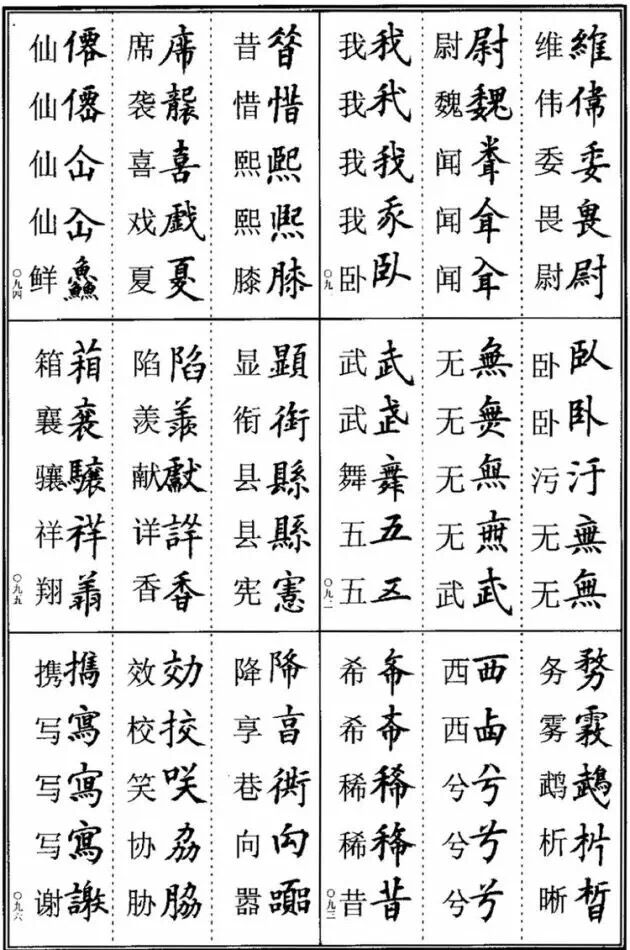 维維 伟偉 委委 畏畏 尉尉
尉尉 魏魏 闻 闻 闻
我我 我我 我我 我 卧臥
〇九
卧臥 卧卧 污汙 无無 无無
无無 无無 无無 无無 武武
武武 武武 舞舞 五五 五五
〇九二
务務 雾霧 鹉鵡 析析 晰晳
西西 西 兮兮 兮兮 兮兮
希希 希希 稀稀 稀稀 昔昔
〇九三
昔昔 惜惜 熙熙 熙熙 膝膝
席席 袭襲 喜喜 戏戲 夏夏
仙僊 仙僊 仙仚 仙仚 鲜鱻
〇九四
显顯 衔銜 县縣 县縣 宪憲
陷陷 羡羨 献獻 详詳 香香
箱箱 襄襄 骧驤 祥祥 翔翔
〇九五
降降 享亯 巷衖 向向 嚣囂
效効 校挍 笑咲 协劦 胁脇
携攜 写寫 写寫 写寫 谢謝
〇九六